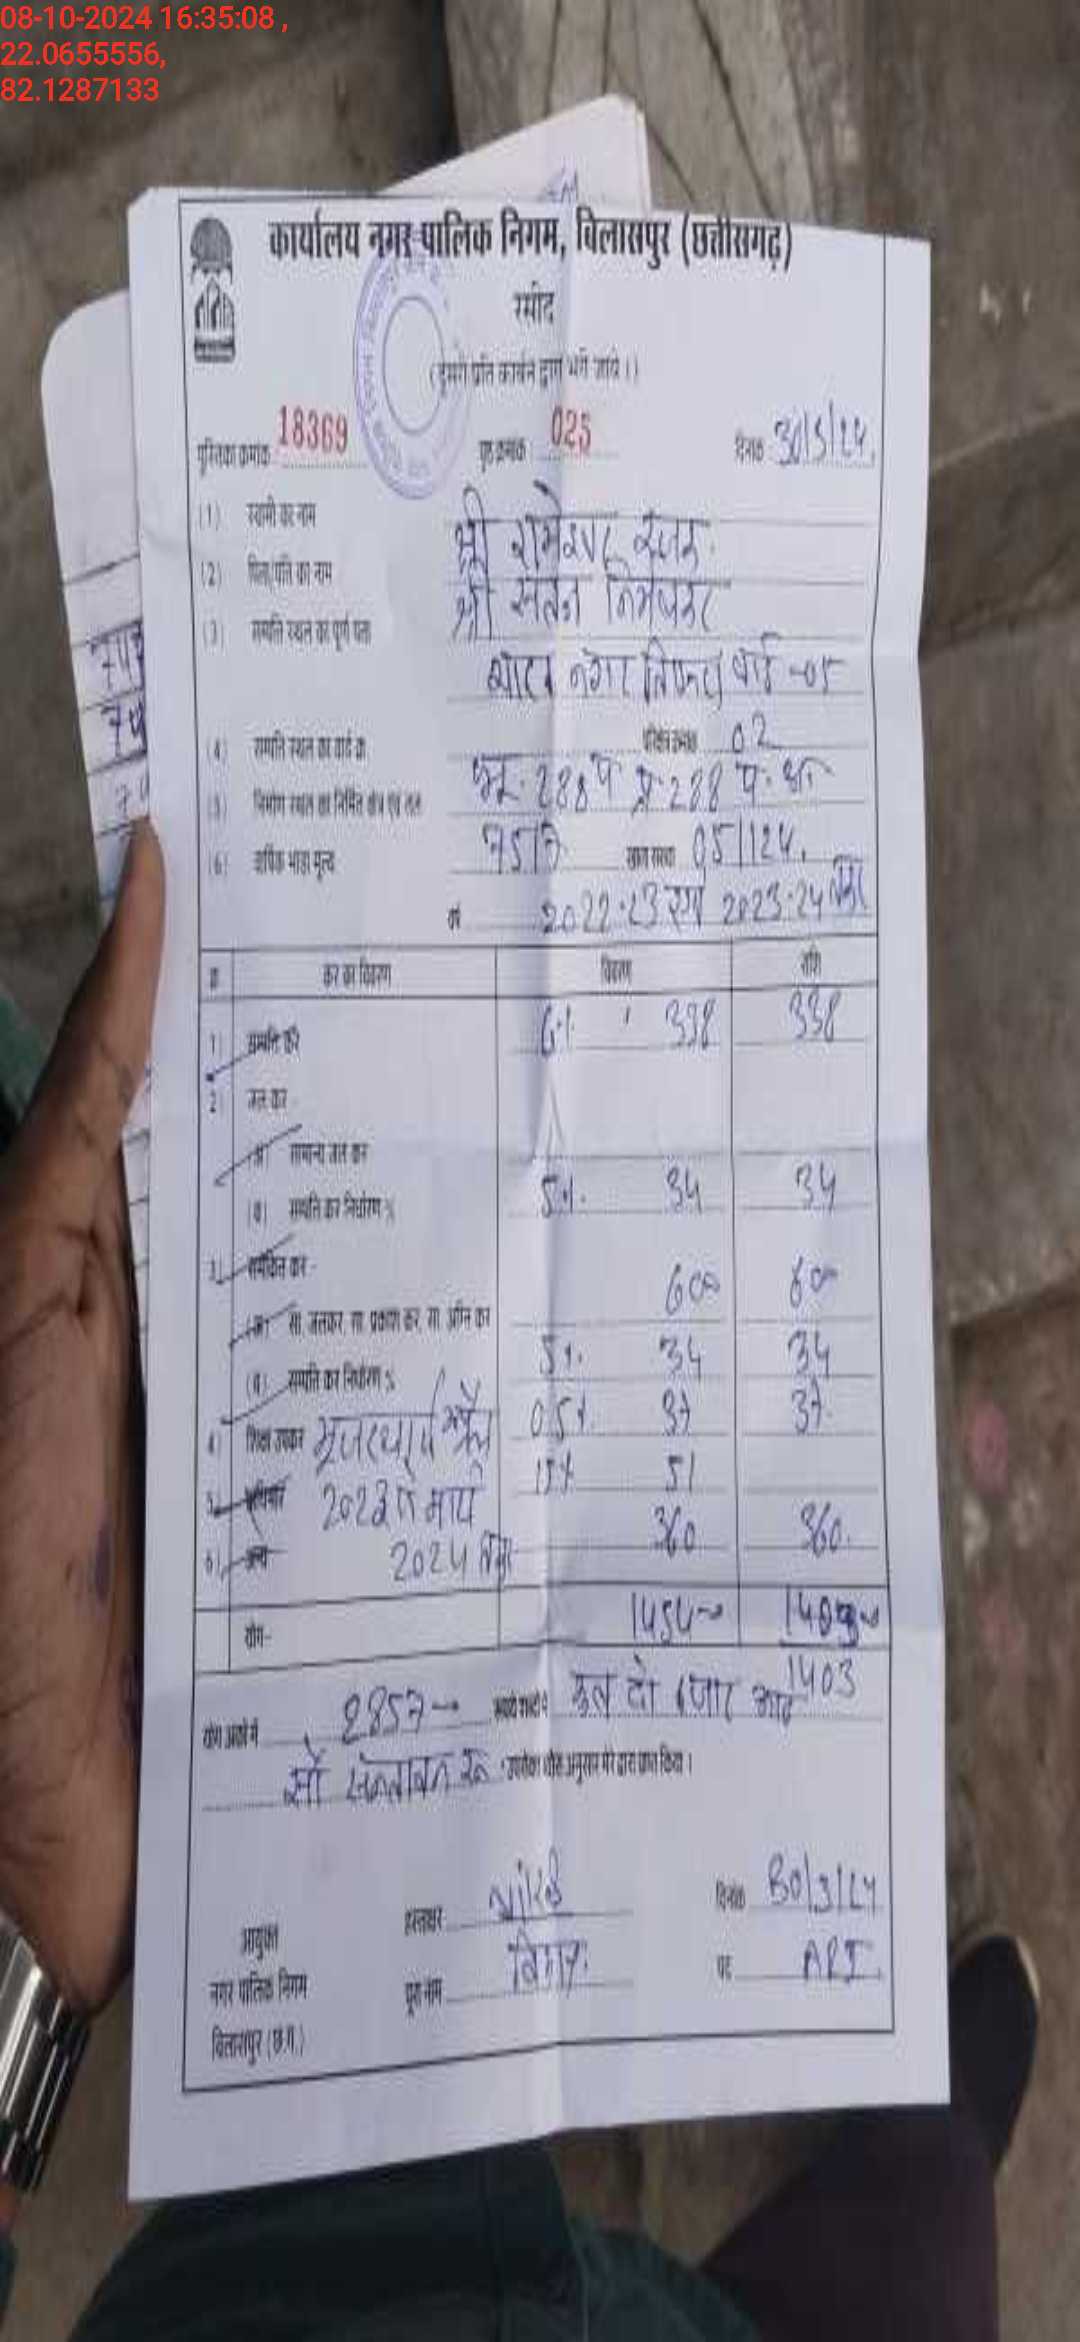 08-10-2024 16:35:08 ,
22.0655556,
82.1287133
कार्यालय नगर पालिक निगम, बिलासपुर (छत्तीसगढ़)
रसीद
(दूसरी प्रति कार्बन द्वारा भरी जाये ।)
पुस्तिका क्रमांक 18369 पृष्ठ क्रमांक 025 दिनांक 30/3/24
(1) स्वामी का नाम श्री रामेश्वर रजक
(2) पिता/पति का नाम श्री
(3) सम्पत्ति स्थल का पूर्ण पता
यादव नगर तिफरा वार्ड -05
(4) सम्पत्ति स्थल का वार्ड क्र. परिक्षेत्र क्रमांक 02
(5) निर्माण स्थल का निर्मित क्षेत्र एवं तल भू. 288 प्र. 288
(6) वार्षिक भाड़ा मूल्य 7517 खाता संख्या 05/124.
वर्ष 2022-23 एवं 2023-24
क्र कर का विवरण विवरण राशि
1) सम्पत्ति कर 6% 338 338
2) जल कर -
(अ) सामान्य जल कर
(ब) सम्पत्ति कर निर्धारण % 5% 34 34
3) समेकित कर -
(अ) सा. जलकर, सा. प्रकाश कर, सा. अग्नि कर 600 600
(ब) सम्पत्ति कर निर्धारण % 5% 34 34
4) शिक्षा उपकर 0.5% 37 37
5) अधिभार 2023 से मार्च 15% 51
6) अन्य 2024 360 360
योग- 1454 1403
1403
योग अंकों में 2857 कुल दो हजार आठ
सौ सन्तावन रू उपरोक्त योग अनुसार मेरे द्वारा प्राप्त किया ।
हस्ताक्षर दिनांक 30/3/24
आयुक्त
नगर पालिक निगम पूरा नाम पद ARI
बिलासपुर (छ.ग.)